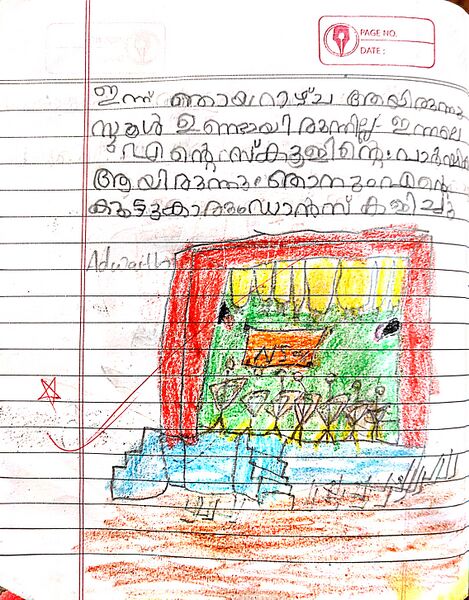 PAGE NO.
DATE :
ഇന്ന് ഞായറാഴ്ച ആയിരുന്നു
സ്കൂൾ ഉണ്ടായിരുന്നില്ല ഇന്നലെ
എന്റെ സ്കൂളിന്റെ
ആയിരുന്നു ഞാനും എന്റെ
കൂട്ടുകാരും ഡാൻസ് കളിച്ചു